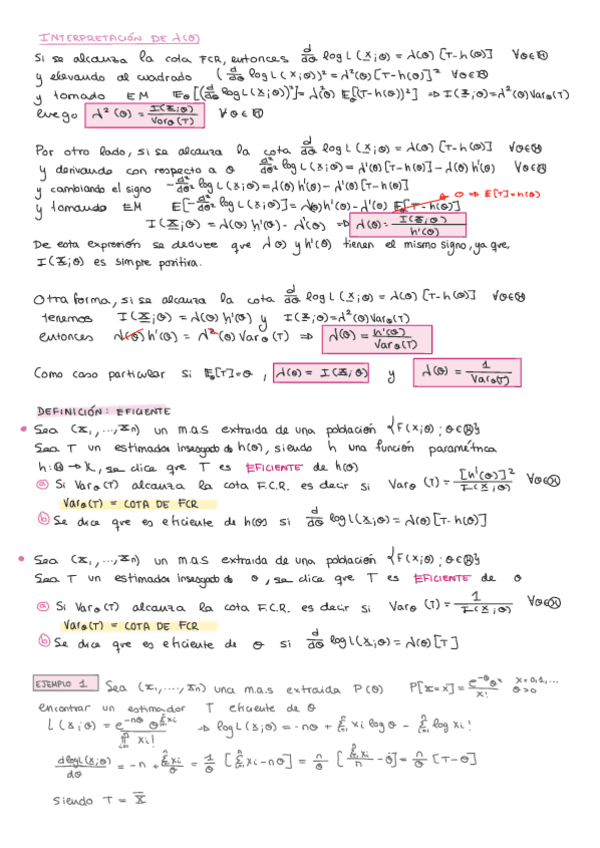 INTERPRETACIÓN DE λ(θ)
Si se alcanza la cota FCR, entonces d/dθ log L(X;θ) = λ(θ) [T-h(θ)] ∀θ∈Θ
y elevando al cuadrado (d/dθ log L(X;θ))² = λ²(θ) [T-h(θ)]² ∀θ∈Θ
y tomado EM Eθ[(d/dθ log L(X;θ))²] = λ²(θ) Eθ[(T-h(θ))²] ⇒ I(X;θ) = λ²(θ) Varθ(T)
luego λ²(θ) = I(X;θ)/Varθ(T) ∀θ∈Θ
Por otro lado, si se alcanza la cota d/dθ log L(X;θ) = λ(θ) [T-h(θ)] ∀θ∈Θ
y derivando con respecto a θ d²/dθ² log L(X;θ) = λ'(θ) [T-h(θ)] - λ(θ) h'(θ) ∀θ∈Θ
y cambiando el signo -d²/dθ² log L(X;θ) = λ(θ) h'(θ) - λ'(θ) [T-h(θ)]
y tomando EM E[-d²/dθ² log L(X;θ)] = λ(θ) h'(θ) - λ'(θ) E[T-h(θ)] 0 ⇒ E[T]=h(θ)
I(X;θ) = λ(θ) h'(θ) - λ'(θ) ⇒ λ(θ) = I(X;θ)/h'(θ)
De esta expresión se deduce que λ(θ) y h'(θ) tienen el mismo signo, ya que,
I(X;θ) es simpre positiva.
Otra forma, si se alcanza la cota d/dθ log L(X;θ) = λ(θ) [T-h(θ)] ∀θ∈Θ
tenemos I(X;θ) = λ(θ) h'(θ) y I(X;θ) = λ²(θ) Varθ(T)
entonces λ(θ) h'(θ) = λ²(θ) Varθ(T) ⇒ λ(θ) = h'(θ)/Varθ(T)
Como caso particular si Eθ[T]=θ, λ(θ) = I(X;θ) y λ(θ) = 1/Varθ(T)
DEFINICIÓN: EFICIENTE
• Sea (X₁,...,Xn) un m.a.s extraida de una población {F(x;θ); θ∈Θ}
Sea T un estimador insesgado de h(θ), siendo h una función paramétrica
h: Θ → R, se dice que T es EFICIENTE de h(θ)
ⓐ Si Varθ(T) alcanza la cota F.C.R. es decir si Varθ(T) = [h'(θ)]²/I(X;θ) ∀θ∈Θ
Varθ(T) = COTA DE FCR
ⓑ Se dice que es eficiente de h(θ) si d/dθ log L(X;θ) = λ(θ) [T-h(θ)]
• Sea (X₁,...,Xn) un m.a.s extraida de una población {F(x;θ); θ∈Θ}
Sea T un estimador insesgado de θ, se dice que T es EFICIENTE de θ
ⓐ Si Varθ(T) alcanza la cota F.C.R. es decir si Varθ(T) = 1/I(X;θ) ∀θ∈Θ
Varθ(T) = COTA DE FCR
ⓑ Se dice que es eficiente de θ si d/dθ log L(X;θ) = λ(θ) [T]
EJEMPLO 1 Sea (X₁,...,Xn) una m.a.s extraida P(θ) P[X=x] = e^-θ θ^x / x! x=0,1,... θ>0
encontrar un estimador T eficiente de θ
L(X;θ) = e^-nθ θ^Σxi / Π xi! ⇒ log L(X;θ) = -nθ + Σ xi log θ - Σ log xi!
dlog L(X;θ)/dθ = -n + Σxi/θ = 1/θ [Σ xi - nθ] = n/θ [Σxi/n - θ] = n/θ [T-θ]
siendo T = X̄